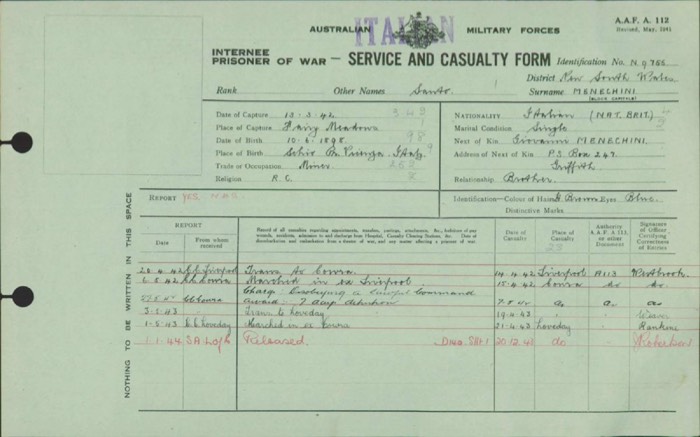 A.A.F. A. 112
Revised, May, 1941
ITALIAN
AUSTRALIAN MILITARY FORCES
INTERNEE
PRISONER OF WAR — SERVICE AND CASUALTY FORM Identification No. N.9755
District New South Wales
Rank Other Names Santo Surname MENECHINI
(BLOCK CAPITALS)
Date of Capture 13.3.42
Place of Capture Fairy Meadow
Date of Birth 10.6.1898
Place of Birth Schio Italy
Trade or Occupation Miner
Religion R.C.
Nationality Italian (NAT. BRIT.)
Marital Condition Single
Next of Kin Giovanni MENECHINI
Address of Next of Kin P.O. Box 247
Griffith
Relationship Brother
Identification—Colour of Hair Brown Eyes Blue
Distinctive Marks
REPORT YES. N.B.S.
NOTHING TO BE WRITTEN IN THIS SPACE
REPORT
Date From whom received
Record of all casualties regarding appointments, transfers, postings, attachments, &c., forfeiture of pay, wounds, accidents, admission to and discharge from Hospital, Casualty Clearing Stations, &c. Date of disembarkation and embarkation from a theatre of war, and any matter affecting a prisoner of war.
Date of Casualty
Place of Casualty
Authority A.A.F. A 111. or other Document
Signature of Officer Certifying Correctness of Entries
20.4.42 Liverpool Trans to Cowra 14.4.42 Liverpool A113 Westbrook
6.5.42 Cowra Marched in ex Liverpool 15.4.42 Cowra do do
Charge: Disobeying a lawful command
Cowra award: 7 days detention 7.5.42 do do do
3.5.43 " Trans. to Loveday 19.4.43 " "
1.5.43 Loveday Marched in ex Cowra 21.4.43 Loveday " Rankine
1.1.44 Released 20.12.43 do " Robertson